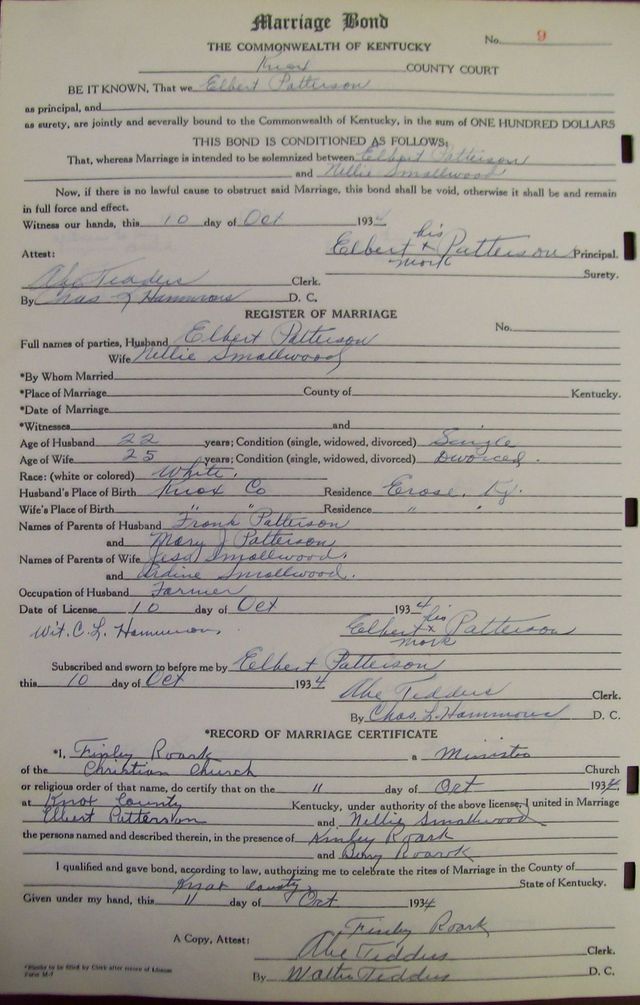 Marriage Bond
No. 9
THE COMMONWEALTH OF KENTUCKY
Knox COUNTY COURT
BE IT KNOWN, That we Elbert Patterson
as principal, and
as surety, are jointly and severally bound to the Commonwealth of Kentucky, in the sum of ONE HUNDRED DOLLARS
THIS BOND IS CONDITIONED AS FOLLOWS:
That, whereas Marriage is intended to be solemnized between Elbert Patterson
and Nellie Smallwood
Now, if there is no lawful cause to obstruct said Marriage, this bond shall be void, otherwise it shall be and remain
in full force and effect.
Witness our hands, this 10 day of Oct 1934
his
Attest: Elbert x Patterson Principal.
mark
Surety.
Abe Tedders Clerk.
By Chas L Hammons D. C.
REGISTER OF MARRIAGE
No.
Full names of parties, Husband Elbert Patterson
Wife Nellie Smallwood
*By Whom Married
*Place of Marriage County of Kentucky.
*Date of Marriage
*Witnesses and
Age of Husband 22 years; Condition (single, widowed, divorced) Single
Age of Wife 25 years; Condition (single, widowed, divorced) Divorced.
Race: (white or colored) White.
Husband's Place of Birth Knox Co Residence Erose, Ky.
Wife's Place of Birth " " Residence " "
Names of Parents of Husband Frank Patterson
and Mary J Patterson
Names of Parents of Wife Jess Smallwood.
and Smallwood.
Occupation of Husband Farmer
Date of License 10 day of Oct 1934
his
Wit. C. L. Hammons, Elbert x Patterson
mark
Subscribed and sworn to before me by Elbert Patterson
this 10 day of Oct 1934
Abe Tedders Clerk.
By Chas. L. Hammons D. C.
*RECORD OF MARRIAGE CERTIFICATE
*I, Finley Roark a Minister
of the Christian Church Church
or religious order of that name, do certify that on the 11 day of Oct 1934
at Knox County Kentucky, under authority of the above license, I united in Marriage
Elbert Patterson and Nellie Smallwood
the persons named and described therein, in the presence of Kinley Roark
and Berry Roark
I qualified and gave bond, according to law, authorizing me to celebrate the rites of Marriage in the County of
Knox County State of Kentucky.
Given under my hand, this 11 day of Oct 1934
Finley Roark
A Copy, Attest: Abe Tedders Clerk.
By Walter Tedders D. C.
*Blanks to be filled by Clerk after return of License
Form M-7